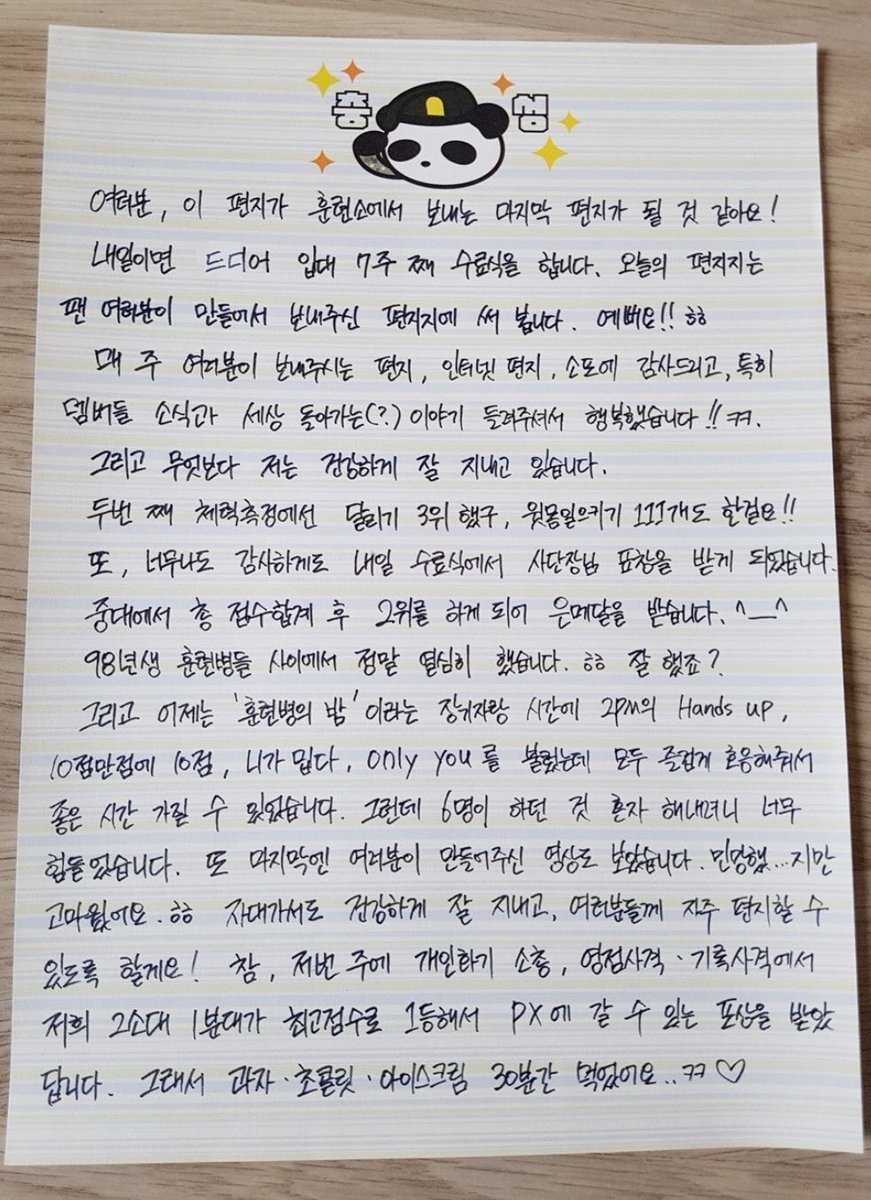 충성
여러분, 이 편지가 훈련소에서 보내는 마지막 편지가 될 것 같아요!
내일이면 드디어 입대 7주 째 수료식을 합니다. 오늘의 편지지는
팬 여러분이 만들어서 보내주신 편지지에 써 봅니다. 예뻐요!! ㅎㅎ
매 주 여러분이 보내주시는 편지, 인터넷 편지, 소포에 감사드리고, 특히
멤버들 소식과 세상 돌아가는(?) 이야기 들려주셔서 행복했습니다!! ㅋㅋ.
그리고 무엇보다 저는 건강하게 잘 지내고 있습니다.
두번 째 체력측정에선 달리기 3위 했구, 윗몸일으키기 111개도 한걸요!!
또, 너무나도 감사하게도 내일 수료식에서 사단장님 표창을 받게 되었습니다.
중대에서 총 점수합계 후 2위를 하게 되어 은메달을 받습니다. ^__^
98년생 훈련병들 사이에서 정말 열심히 했습니다. ㅎㅎ 잘 했죠?
그리고 어제는 '훈련병의 밤'이라는 장기자랑 시간에 2PM의 Hands up,
10점만점에 10점, 니가 밉다, only you를 불렀는데 모두 즐겁게 호응해줘서
좋은 시간 가질 수 있었습니다. 그런데 6명이 하던 것 혼자 해내려니 너무
힘들었습니다. 또 마지막엔 여러분이 만들어주신 영상도 보았습니다. 민망했...지만
고마웠어요. ㅎㅎ 자대가서도 건강하게 잘 지내고, 여러분들께 자주 편지할 수
있도록 할게요! 참, 저번 주에 개인화기 소총, 영점사격·기록사격에서
저희 2소대 1분대가 최고점수로 1등해서 PX에 갈 수 있는 포상을 받았
답니다. 그래서 과자·초콜릿·아이스크림 30분간 먹었어요.. ㅋㅋ ♡